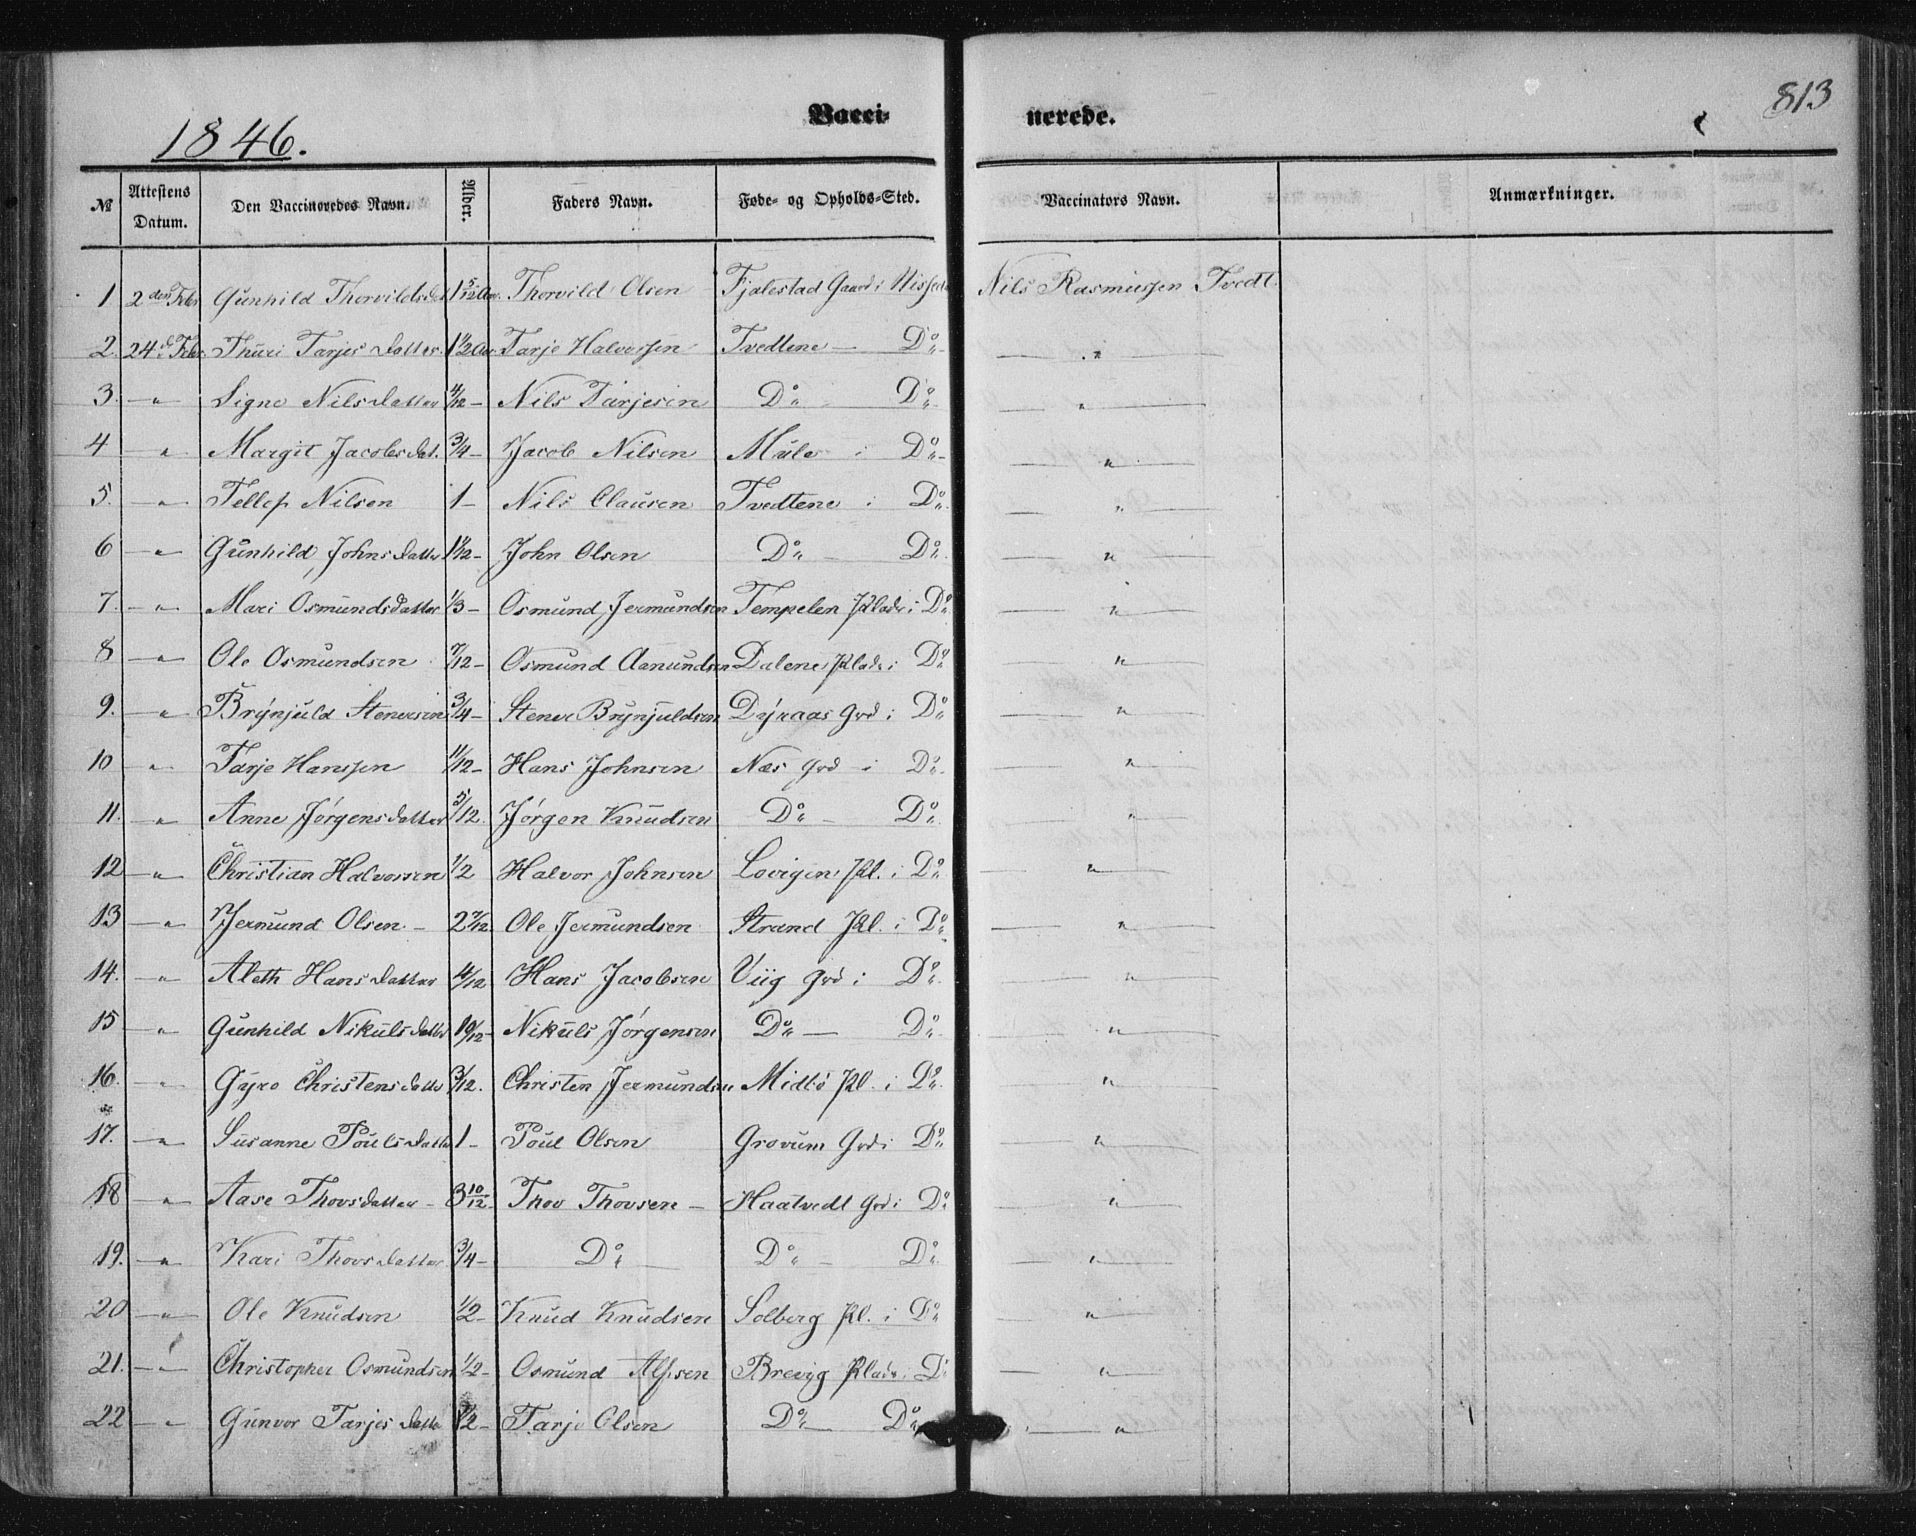 813
1846.
Vacci- nerede.
№ Attestens Datum. Den Vaccineredes Navn. Alder. Faders Navn. Føde- og Opholds-Sted. Vaccinators Navn. Anmærkninger.
1 2den Febr Gunhild Thorvilds 1 5/12 Aar Thorvild Olsen Fjalestad Gaard i Nils Rasmussen Tvedt
2. 24de Febr. Thuri Tarjes Datter 1 1/2 Aar Tarje Halvorsen Tvedtene — Do — " —
3. — " Signe Nils Datter 4/12 — Nils Tarjesen Do Do — " —
4 — " Margit Jacobs Dat. 3/4 — Jacob Nilsen Mule i Do — " —
5. — " Tellef Nilsen 1 — Nils Clausen Tvedtene i Do — " —
6 — " Gunhild Johns Datter John Olsen Do — Do — " —
7. — " Mari Osmunds Datter 1/3 — Osmund Jermundsen Tempelen Plads i Do — " —
8 — " Ole Osmundsen 7/12 — Osmund Aanundsen Dalene Plads i Do — " —
9. — " Brynjuld Stenersen 3/4 — Stener Brynjuldsen Dyraas Grd i Do — " —
10 — " Tarje Hanssen 11/12 — Hans Johnsen Næs Grd i Do — " —
11. — " Anne Jørgens Datter 5/12. Jørgen Knudsen Do — Do — " —
12 — " Christian Halvorsen 1/2 Halvor Johnsen Pl. i Do — " —
13 — " Jermund Olsen — 2 7/12 Ole Jermundsen Strand Pl. i Do — " —
14. — " Aleth Hans Datter 4/12 Hans Jacobsen Viig Grd i Do — " —
15 — " Gunhild Nikuls Datter 10/12 — Nikuls Jørgensen Do — Do — " —
16. — " Gyro Christens Datter 3/12. Christen Jermundsen Midbø Pl. i Do — " —
17. — " Susanne Pouls Datter 1 — Poul Olsen Grovum Grd i Do — " —
18 — " Aase Thovs Datter — 3 10/12 Thov Thovsen — Haatvedt Grd i Do — " —
19. — " Kari Thovs Datter 3/4 — Do — Do — Do — " —
20 — " Ole Knudsen 1/2 — Knud Knudsen Solberg Pl. i Do — " —
21. — " Christopher Osmundsen 1/2 — Osmund Alfsen Brevig Plads Do — " —
22 — " Gunvor Tarjes Datter Tarje Olsen Do — Do — " —